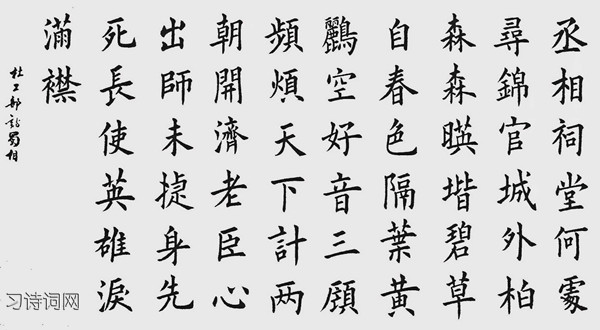 丞相祠堂何處
尋錦官城外柏
森森暎堦碧草
自春色隔葉黃
鸝空好音三頋
頻煩天下計两
朝開濟老臣心
出師未捷身先
死長使英雄淚
滿襟
杜工部詩蜀相
习诗词网